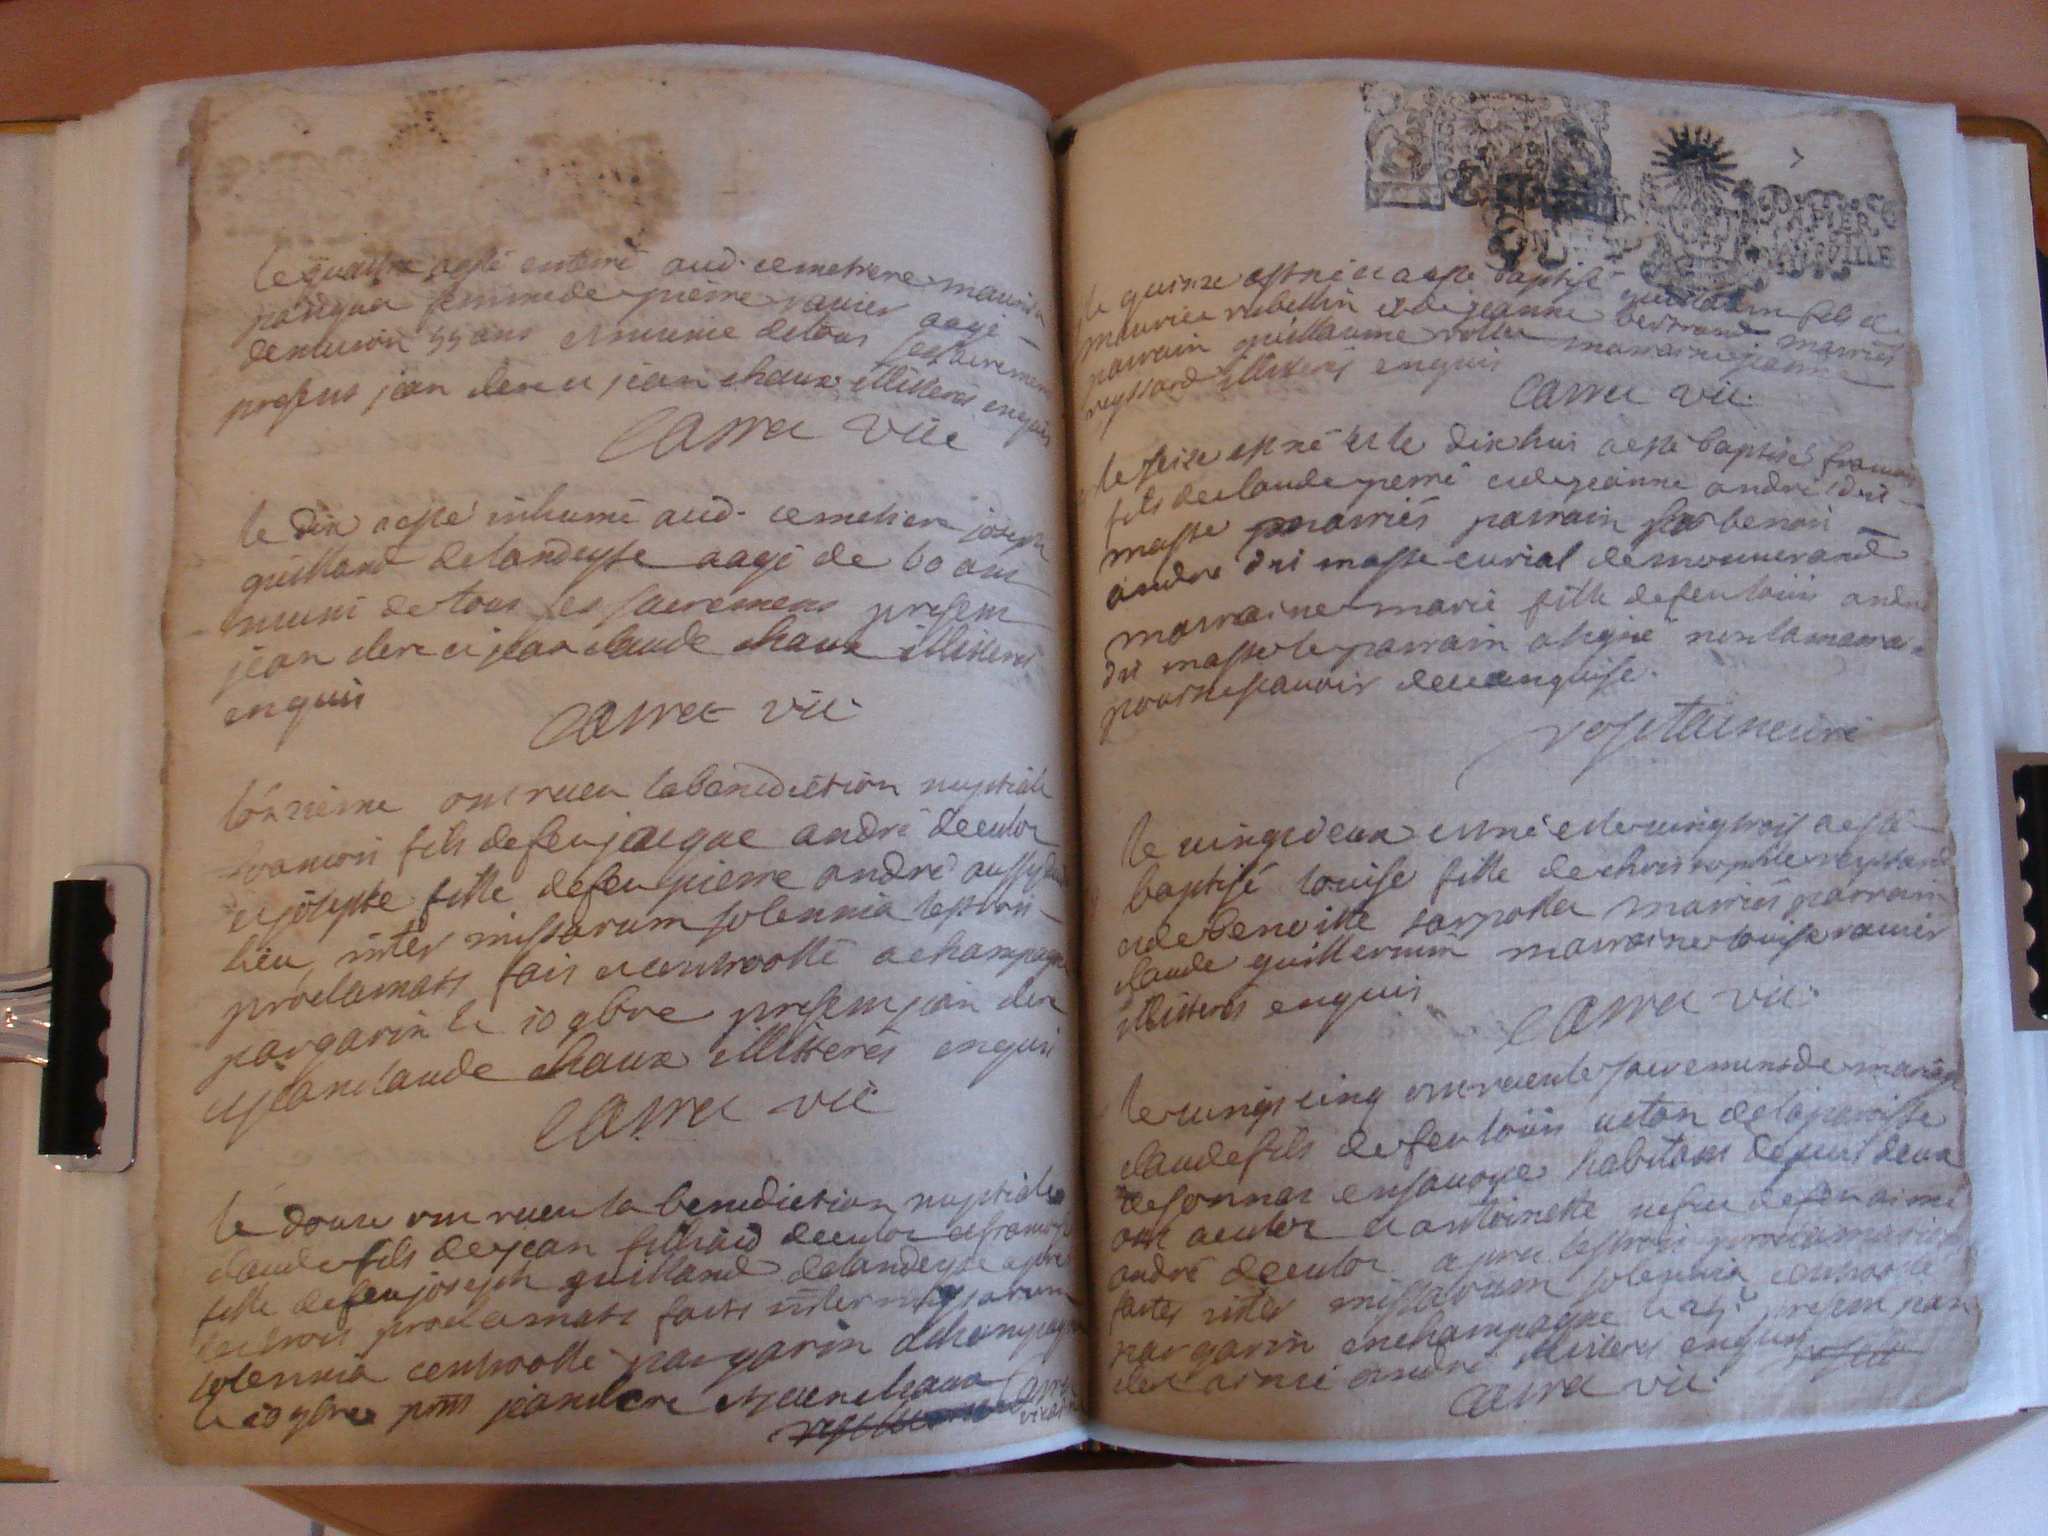 le quattre a esté enterré aud. cemetiere
femme de pierre ravier aagé
d'environ 55 ans et munie de tous les sacremens
presens jean clerc et jean chaux illitterés enquis
Carra vic
le dix a esté inhumé aud. cemetiere joseph
guilland de landeyse aagé de 60 ans
muni de tous les sacremens presens
jean clerc et jean claude chaux illiterés
enquis
Carra vic
l'onzieme ont receu la benediction nuptiale
francois fils de feu jacque andré de culoz
et josepte fille de feu pierre andré aussy dud
lieu inter missarum solennia les trois
proclamats fais et controllé a champagne
par garin le 10 9bre presens jean clerc
et jean claude chaux illitterés enquis
Carra vic
le douze ont receu la benediction nuptiale
claude fils de jean de culoz et francoise
fille de feu joseph guilland de landeyse apres
les trois proclamats faits inter missarum
solennia controllé par garin a champagne
le 10 9bre pnts jean clerc et jean chaux
Carra
vicaire
le quinze est né et a esté baptisé fils de
maurice rubellin et de jeanne bertrand mariés
parrain guillaume marraine jeanne
reyssard illiterés enquis
Carra vic.
le seize est né et le dix huis a esté baptisé francois
fils de claude perré et de jeanne andré dit
masse mariés parrain benoit
andre dit masse curial de
marraine marie fille de feu louis andre
dit masse le parrain a signé non la marraine
pour ne scavoir de ce enquise.
le vingt deux est né et le vingt trois a esté
baptisé louise fille de christophle reyssard
et de benoitte mariés parrain
claude guillermin marraine louise ravier
illiterés enquis
Carra vic.
le vingt cinq ont receu le sacrement de mariage
claude fils de feu louis de la paroisse
en savoye habitant depuis deux
ans a culoz et antoinette de feu aimé
andré de culoz apres les trois proclamations
faites inter missarum solennia controllé
par garin en champagne le presens jean
clerc aimé andré illiterés enquis
Carra vic.